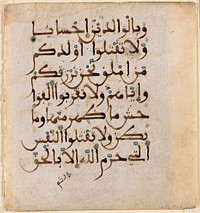 وبالوالدين احسانا
ولا تقتلوا اولدكم
من املق نحن نرزقكم
واياهم ولا تقربوا الفوا
حش ما ظهر منها وما
بطن ولا تقتلوا النفس
التي حرم الله الا بالحق